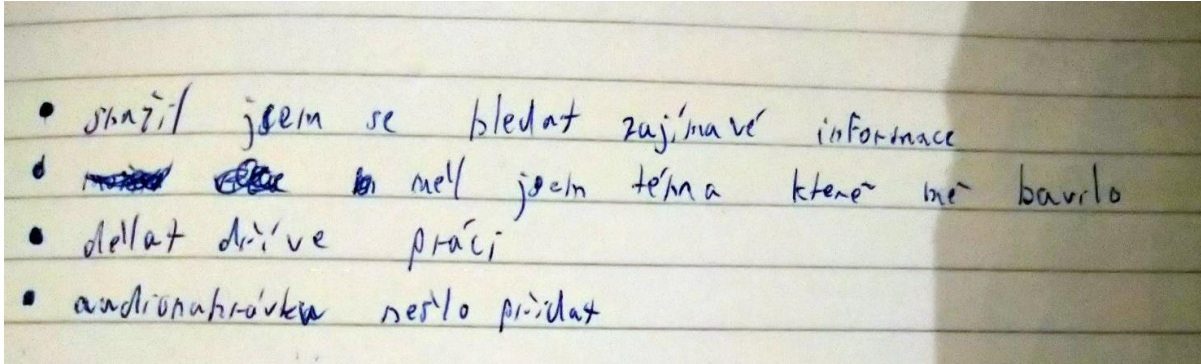 • snažil jsem se hledat zajímavé informace
• měl jsem téma které mě bavilo
• dělat dříve práci
• audionahrávku nešlo přidat